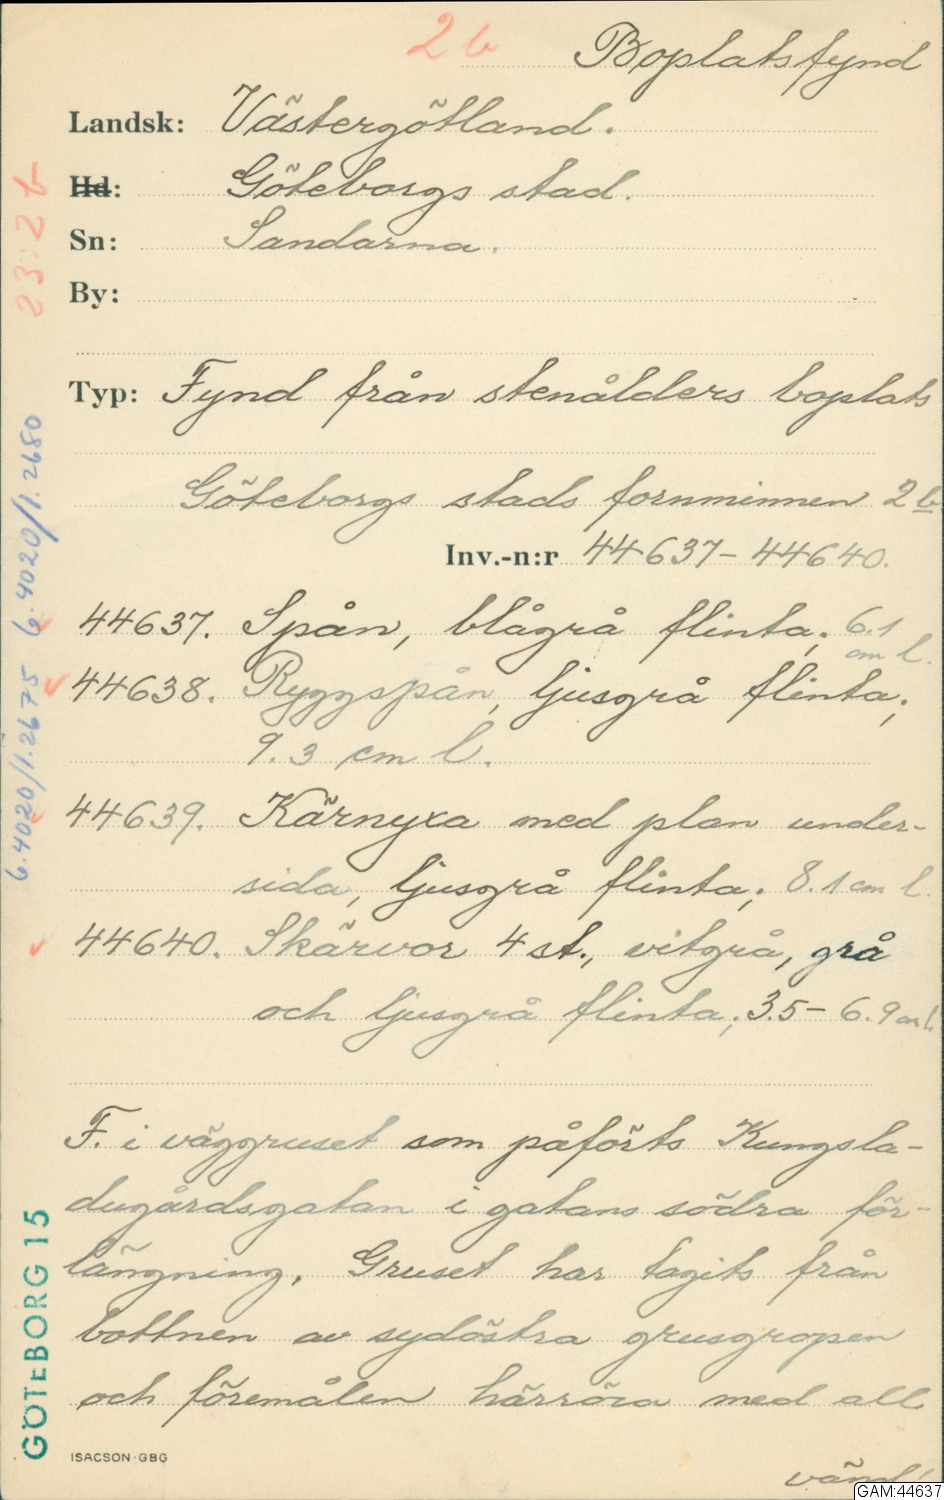 2 b Boplatsfynd
Landsk: Västergötland.
Hd: Göteborgs stad.
Sn: Sandarna.
By:
Typ: Fynd från stenålders boplats
Göteborgs stads fornminnen 2 b
Inv.-n:r 44637-44640.
44637. Spån, blågrå flinta; 6.1
cm l.
44638. Ryggspån, ljusgrå flinta;
9.3 cm l.
44639. Kärnyxa med plan under-
sida, ljusgrå flinta; 8.1 cm l.
44640. Skärvor 4 st., vitgrå, grå
och ljusgrå flinta; 3.5- 6.9 cm l.
F. i väggruset som påförts Kungsla-
dugårdsgatan i gatans södra för-
längning. Gruset har tagits från
bottnen av sydöstra grusgropen
och föremålen härröra med all
vänd!
ISACSON·GBG
GÖTEBORG 15
23:2 b
6.4020/1.2675 6.4020/1.2680
GAM:44637